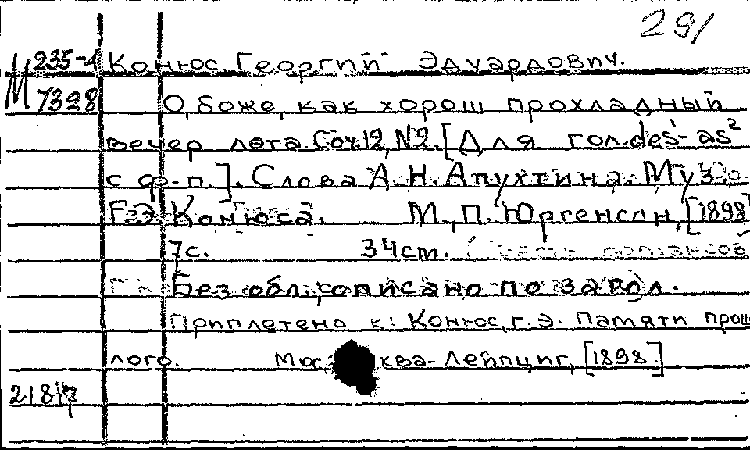 291
М 235-4 Конюс, Георгий Эдуардович.
7328 О, боже, как хорош прохладный
вечер лета. Соч. 12, N2. [Для гол. des'-as²
с ф.-п.]. Слова А. Н. Апухтина. Муз.
Г. Э. Конюса. М., П. Юргенсон, [1898]
7с. 34см.
Без обл.; описано по загол.
Приплетено к: Конюс, Г. Э. Памяти прош
лого. Мос ква-Лейпциг, [1898.]